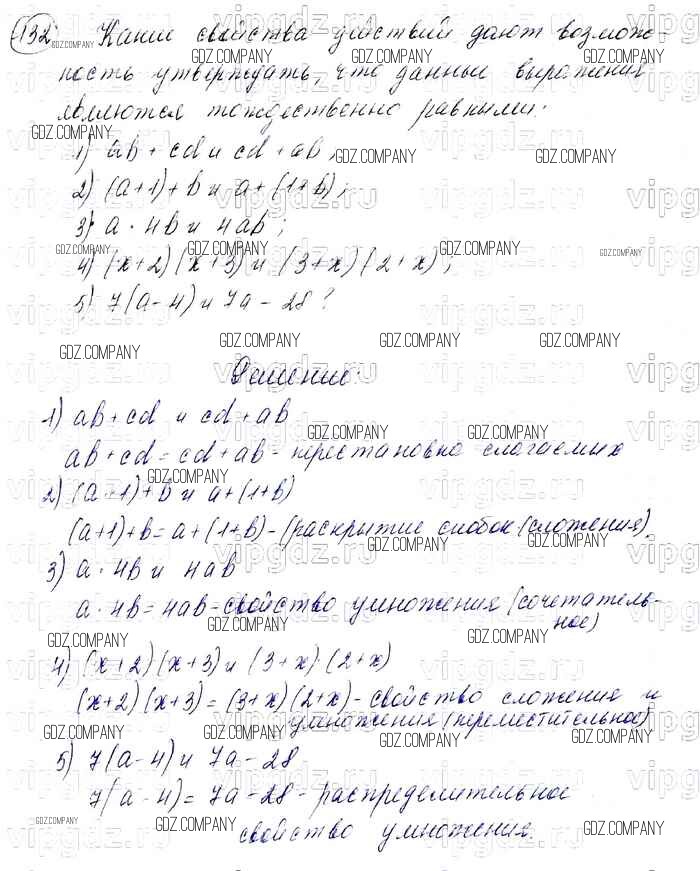 132 Какие свойства действий дают возмож-
ность утверждать, что данные выражения
являются тождественно равными:
1) ab + cd и cd + ab;
2) (a+1)+b и a+(1+b);
3) a · 4b и 4ab;
4) (x+2)(x+3) и (3+x)(2+x);
5) 7(a-4) и 7a-28?
Решение:
1) ab+cd и cd+ab
ab+cd = cd+ab - перестановка слагаемых
2) (a+1)+b и a+(1+b)
(a+1)+b = a+(1+b) - (раскрытие скобок (сложения).
3) a · 4b и 4ab
a · 4b = 4ab - свойство умножения (сочетатель-
ное)
4) (x+2)(x+3) и (3+x)·(2+x)
(x+2)(x+3) = (3+x)(2+x) - свойство сложения и
умножения (переместительное)
5) 7(a-4) и 7a-28
7(a-4) = 7a-28 - распределительное
свойство умножения.
GDZ.COMPANY
vipgdz.ru